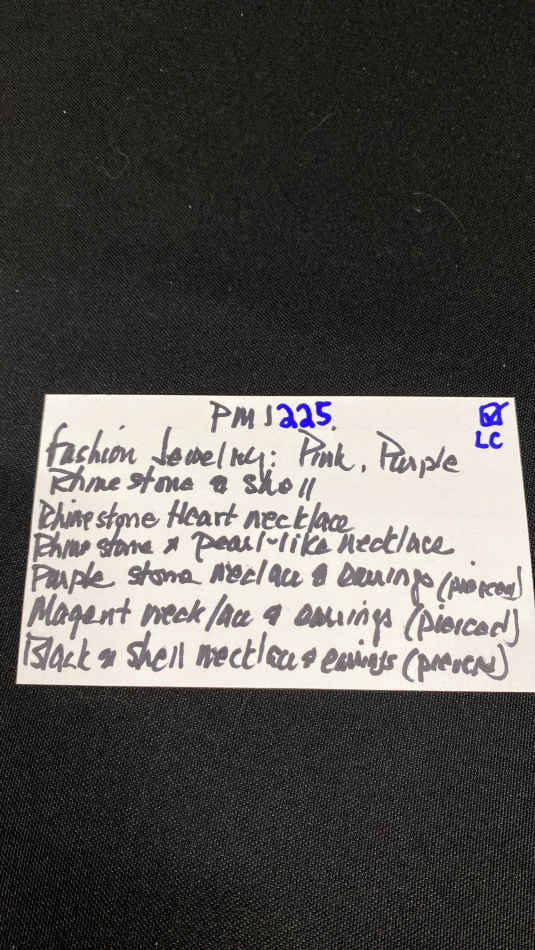 PMJ225
LC
Fashion Jewelry: Pink, Purple
Rhinestone & Shell
Rhinestone Heart necklace
Rhinestone & pearl-like necklace
Purple stone necklace & earrings (pierced)
Magent necklace & earrings (pierced)
Black & shell necklace & earrings (pierced)